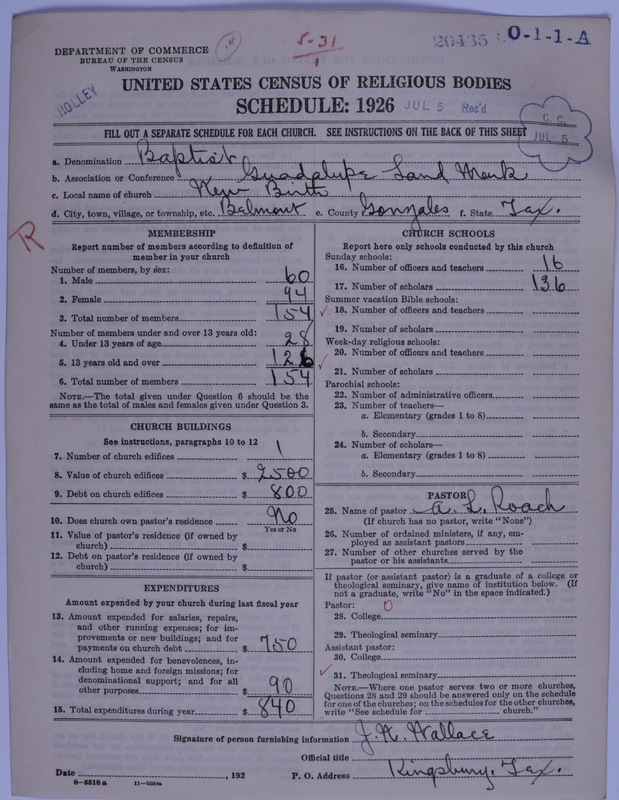 DEPARTMENT OF COMMERCE
BUREAU OF THE CENSUS
WASHINGTON
5-31
1
20435
O-1-1-A
HOLLEY
UNITED STATES CENSUS OF RELIGIOUS BODIES
SCHEDULE: 1926
JUL 5 Rec'd
C. C.
JUL 5
FILL OUT A SEPARATE SCHEDULE FOR EACH CHURCH. SEE INSTRUCTIONS ON THE BACK OF THIS SHEET
a. Denomination Baptist
b. Association or Conference Guadalupe Land Mark
c. Local name of church New Birth
d. City, town, village, or township, etc. Belmont e. County Gonzales f. State Tex.
R
MEMBERSHIP
Report number of members according to definition of
member in your church
Number of members, by sex:
1. Male 60
2. Female 94
3. Total number of members 154
Number of members under and over 13 years old:
4. Under 13 years of age 28
5. 13 years old and over 126
6. Total number of members 154
NOTE.—The total given under Question 6 should be the
same as the total of males and females given under Question 3.
CHURCH BUILDINGS
See instructions, paragraphs 10 to 12
7. Number of church edifices 1
8. Value of church edifices $ 2500
9. Debt on church edifices $ 800
10. Does church own pastor's residence No
Yes or No
11. Value of pastor's residence (if owned by
church) $
12. Debt on pastor's residence (if owned by
church) $
EXPENDITURES
Amount expended by your church during last fiscal year
13. Amount expended for salaries, repairs,
and other running expenses; for im-
provements or new buildings; and for
payments on church debt $ 750
14. Amount expended for benevolences, in-
cluding home and foreign missions; for
denominational support; and for all
other purposes $ 90
15. Total expenditures during year $ 840
CHURCH SCHOOLS
Report here only schools conducted by this church
Sunday schools:
16. Number of officers and teachers 16
17. Number of scholars 136
Summer vacation Bible schools:
18. Number of officers and teachers
19. Number of scholars
Week-day religious schools:
20. Number of officers and teachers
21. Number of scholars
Parochial schools:
22. Number of administrative officers
23. Number of teachers—
a. Elementary (grades 1 to 8)
b. Secondary
24. Number of scholars—
a. Elementary (grades 1 to 8)
b. Secondary
PASTOR
25. Name of pastor A. L. Roach
(If church has no pastor, write "None")
26. Number of ordained ministers, if any, em-
ployed as assistant pastors
27. Number of other churches served by the
pastor or his assistants
If pastor (or assistant pastor) is a graduate of a college or
theological seminary, give name of institution below. (If
not a graduate, write "No" in the space indicated.)
Pastor: 0
28. College
29. Theological seminary
Assistant pastor:
30. College
31. Theological seminary
NOTE.—Where one pastor serves two or more churches,
Questions 28 and 29 should be answered only on the schedule
for one of the churches; on the schedules for the other churches,
write "See schedule for church."
Signature of person furnishing information J. A. Wallace
Official title
Date , 192 P. O. Address Kingsbury, Tex.
8-5518a 11-0054a